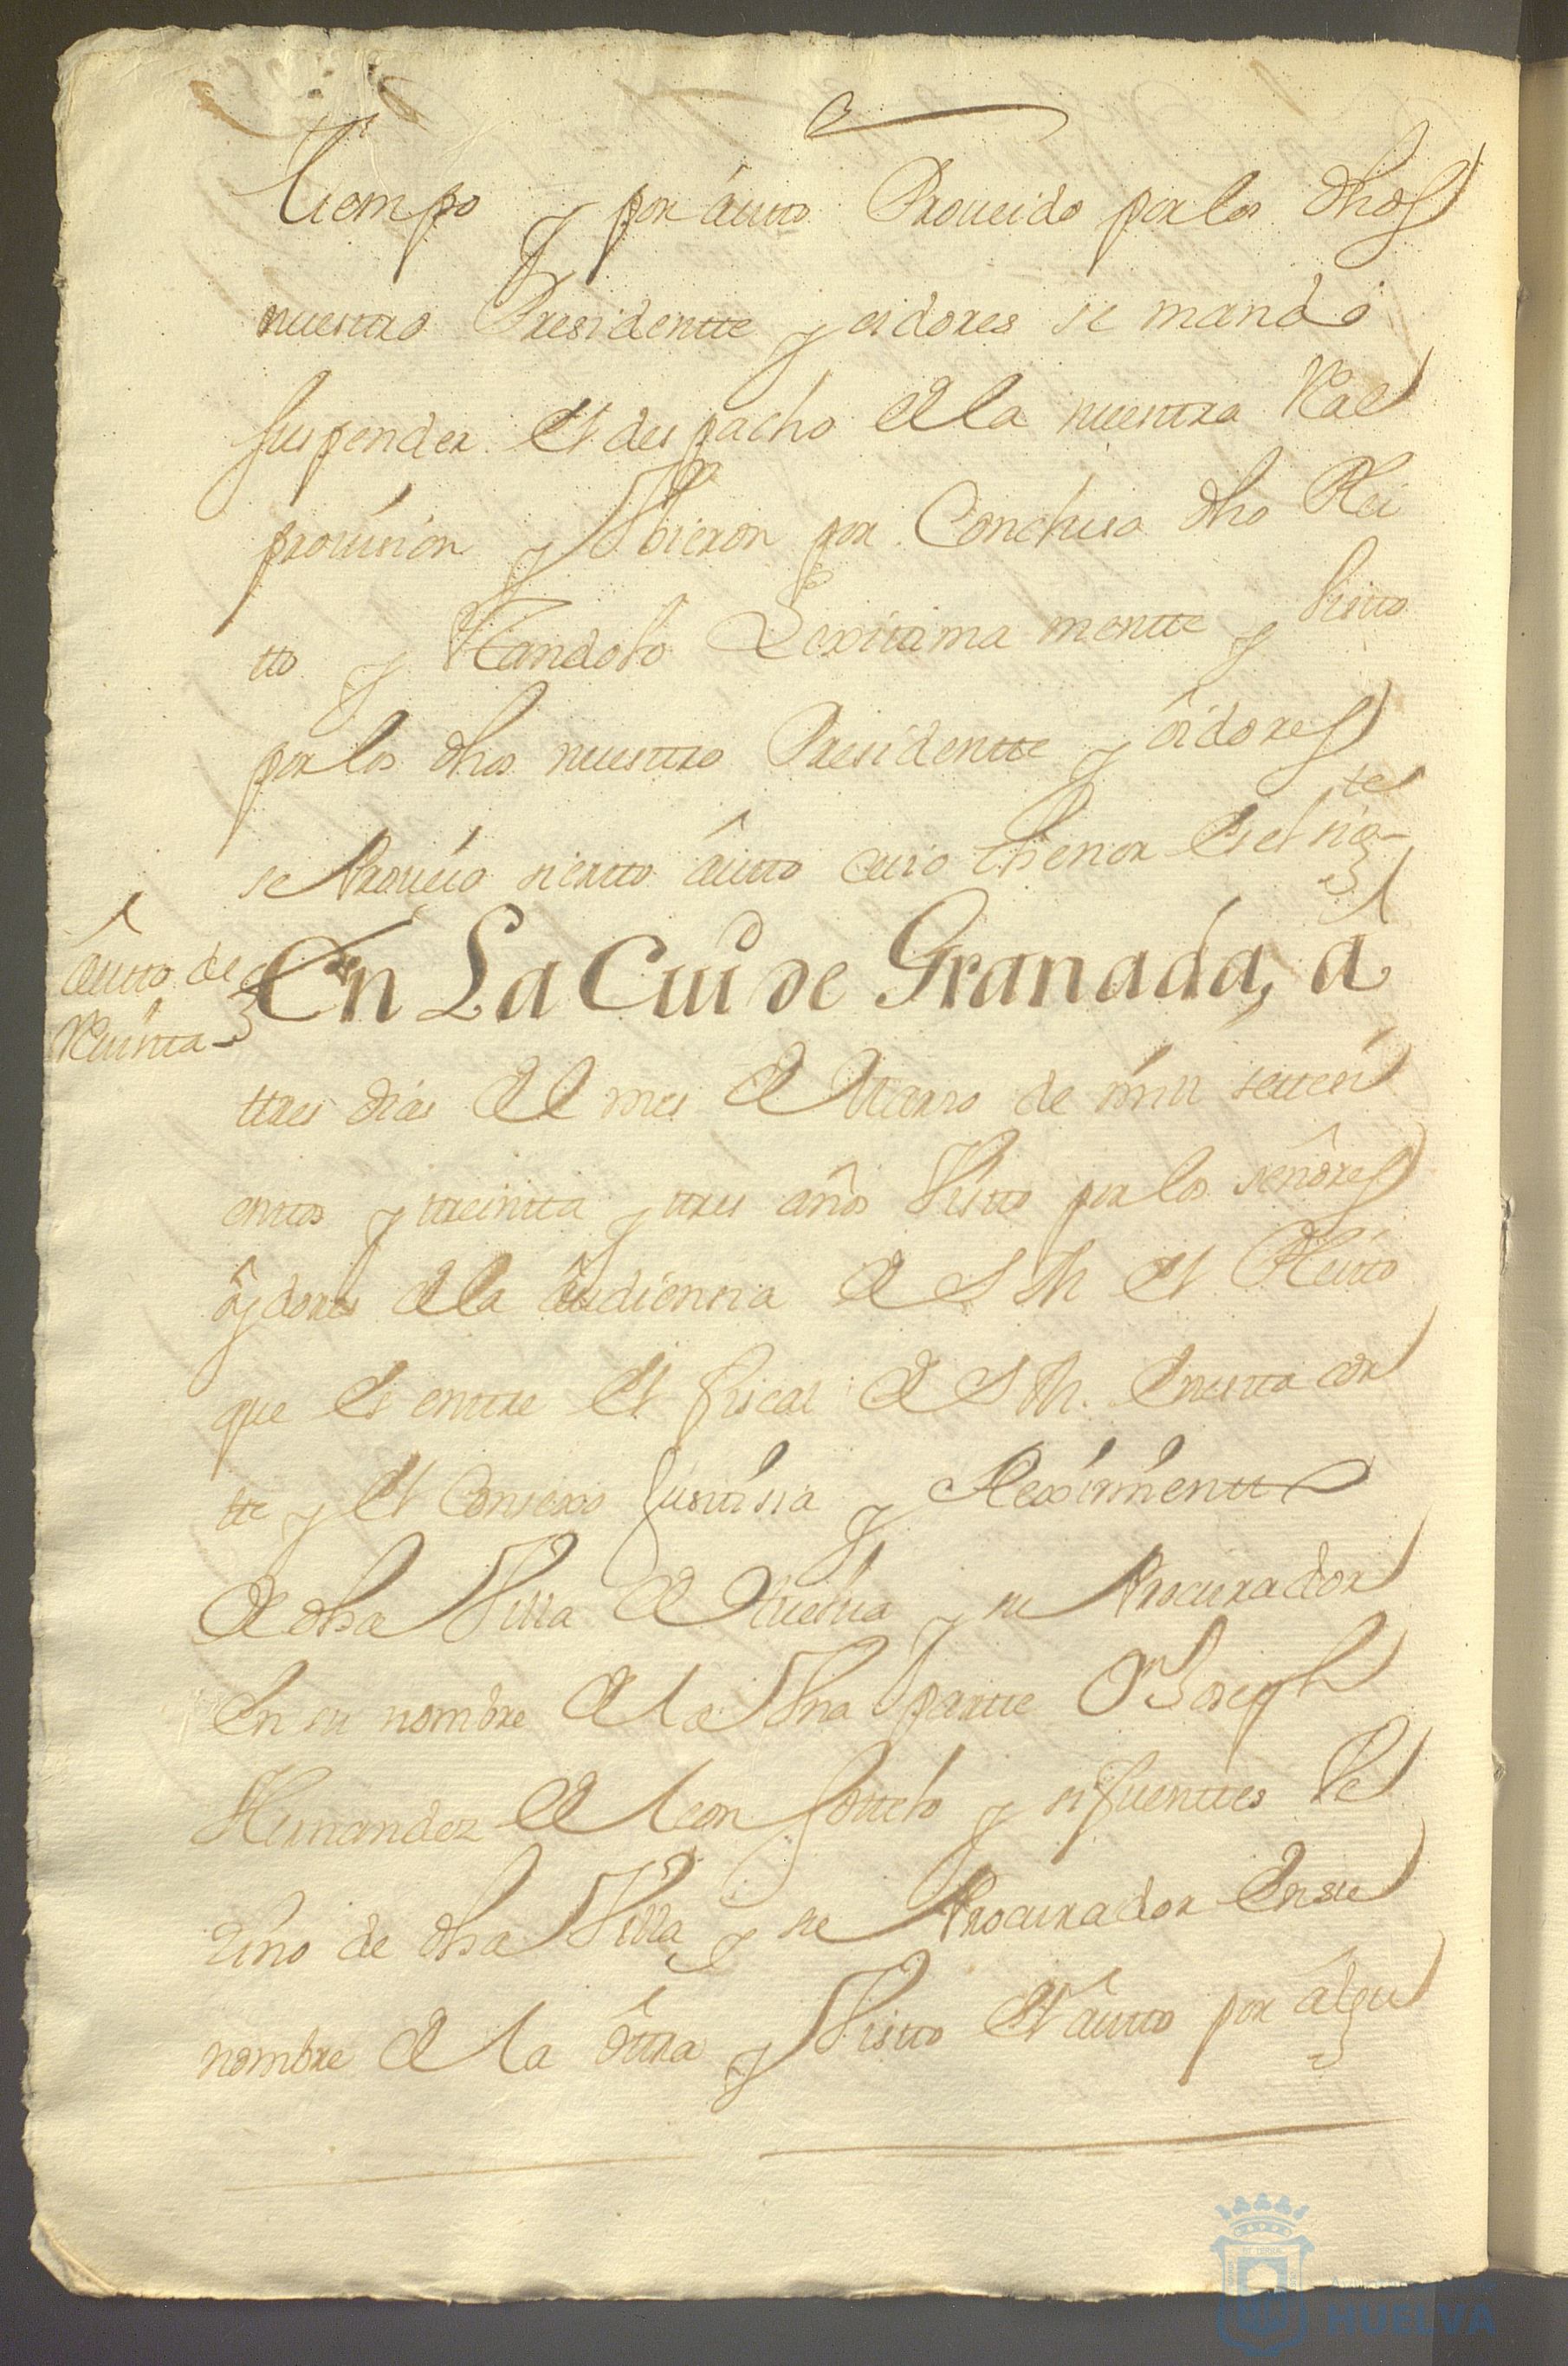 tiempo y por autto Proueido por los dhos
nuestro Presidentte y oidores se mandó
suspender el despacho de la nuestra Real
prouision y Vbieron por Concluso dho Plei
tto y estandolo Lexitima mentte y Vistto
por los dhos nuestro Presidentte y oidores
se Proueio siertto âutto cuio thenor es el sigte
âutto de
Reuista
En La Ciud de Granada, â
ttres dias del mes de Marzo de mill settesi
enttos y treintta y ttres años Visto por los señores
ôydores de la âudiensia de S M el Pleitto
que es enttre el fiscal de S M. en esta cor
tte y el Consexo Justisia y Reximientto
de dha Villa de Huelua y su Procurador
en su nombre de la Vna partte Dn Joseph
Hernandez de leon sottelo y sifuenttes Ve
zino de dha Villa y su Procurador en su
nombre de la ôttra y Vistto el âutto por âlgu
HUELVA